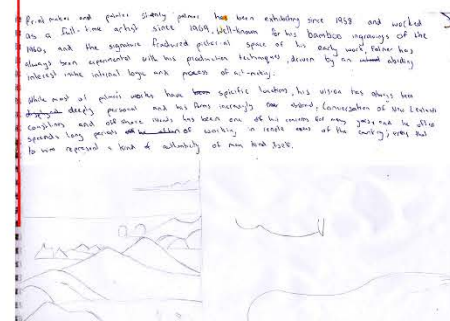 Print maker and painter Stanly palmer has been exhibiting since 1958 and worked
as a full-time artist since 1969. Well-known for his bamboo ingravings of the
1960s, and the signature fractured pictorial space of his early work, Palmer has
always been experimental with his production techniques, driven by an abiding
interest in the internal logic and process of art-making.
While most of palmers works have specific locations, his vision has always been
deeply personal and his forms increasingly abstract. Conservation of New Zealands
coastlines and off shore islands has been one of his concerns for many years, and he often
spends long periods of working in remote areas of the country; areas that
to him represent a kind of authenticity of man land itself.